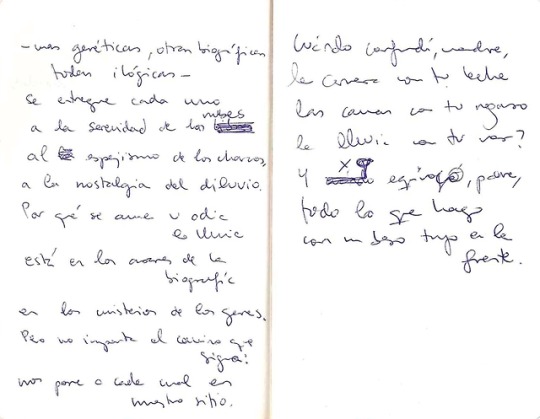 –unas genéticas, otras biográficas,
todas ilógicas–
se entregue cada uno
a la serenidad de las nubes
al espejismo de los charcos,
a la nostalgia del diluvio.
Por qué se ame u odie
la lluvia
está en los azares de la
biografía
en los misterios de los genes.
Pero no importa el camino que
sigue:
nos pone a cada cual en
nuestro sitio.
Cuándo confundí, madre,
la cerveza con tu leche
las camas con tu regazo
la lluvia con tu voz?
Y equivoqué, padre,
todo lo que hago
con un beso tuyo en la
frente.